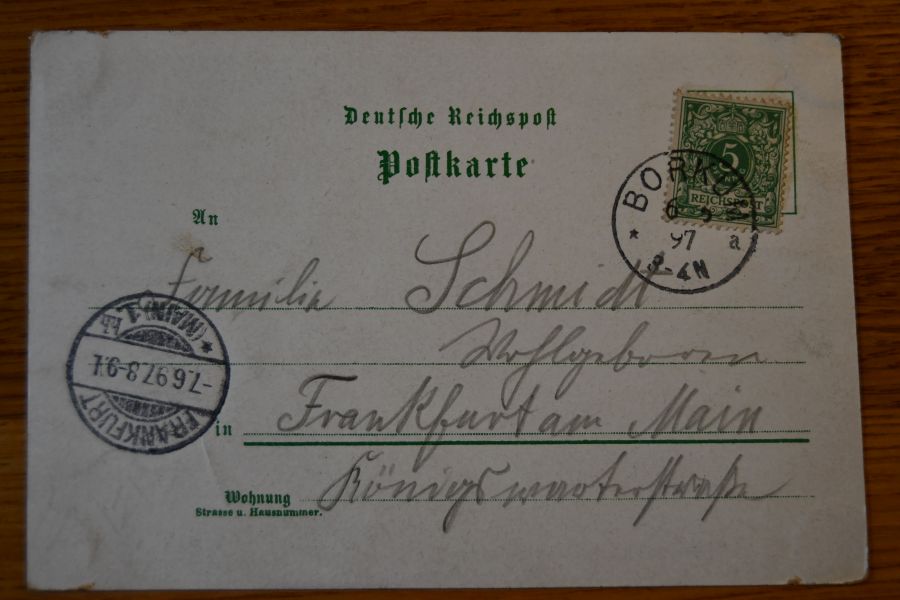 Deutsche Reichspost
Postkarte
5
REICHSPOST
BORKUM
97 a
3-4N
An
Familie Schmidt
Wohlgeboren
in Frankfurt am Main
Königswarterstraße
Wohnung
Strasse u. Hausnummer.
FRANKFURT
-7.6.97.8-9
(MAIN) 1.